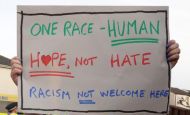 ONE RACE - HUMAN
H♥PE, NOT HATE
RACISM NOT WELCOME HERE